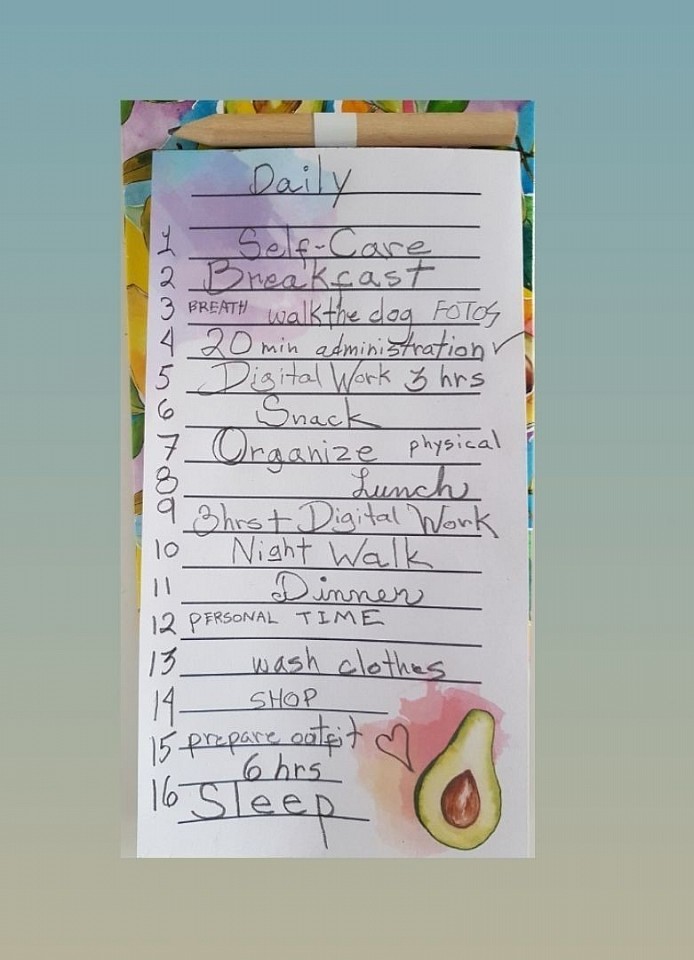 Daily
1 Self-Care
2 Breakfast
3 BREATH walk the dog FOTOS
4 20 min administration ✓
5 Digital Work 3 hrs
6 Snack
7 Organize physical
8 Lunch
9 3hrs + Digital Work
10 Night Walk
11 Dinner
12 PERSONAL TIME
13 wash clothes
14 SHOP
15 prepare outfit
6 hrs
16 Sleep